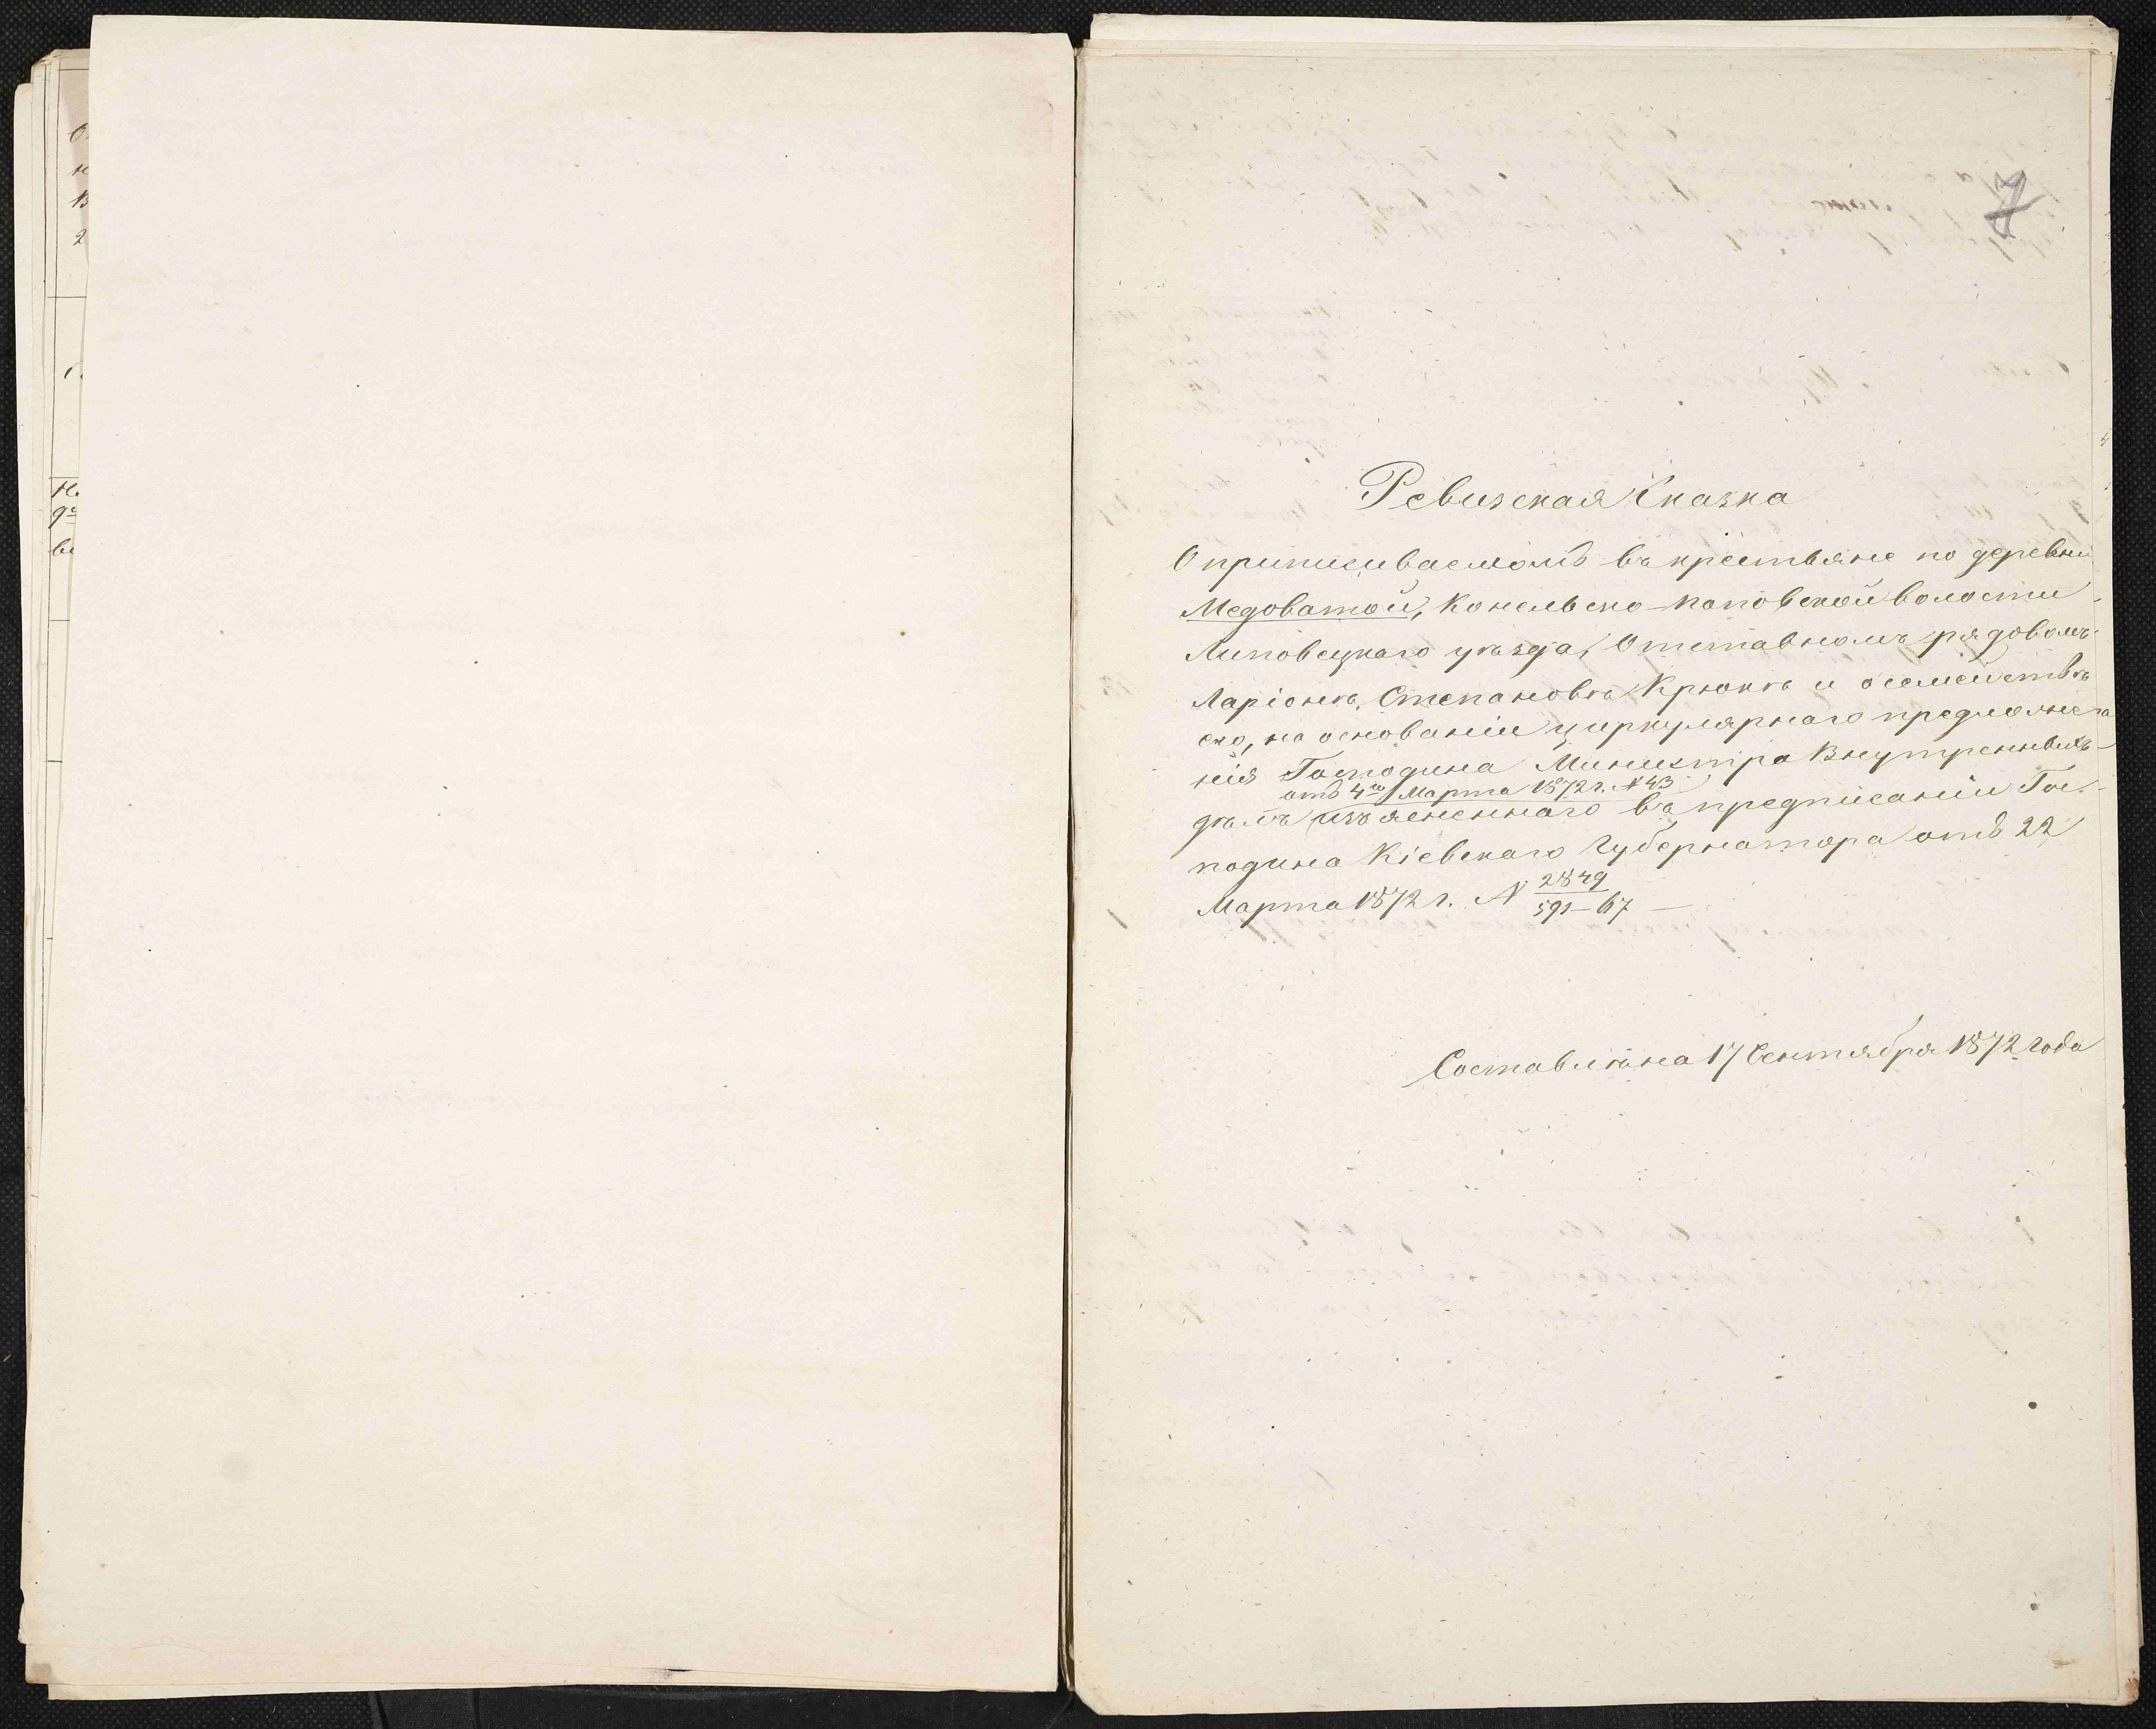 7
Ревизская Сказка
О приписиваемомъ въ крестьяне по деревни
Медоватой, Конельско-Поповской волости
Липовецкаго уѣзда, Отставномъ рядовомъ
Ларіонѣ Степановѣ Крюкѣ и о семействѣ
его, на основаніи циркулярнаго предложе-
нія Господина Министра Внутреннихъ
отъ 4го Марта 1872 г. № 43
дѣлъ изъясненнаго въ предписаніи Гос-
подина Кіевскаго Губернатора отъ 22
Марта 1872 г. № 2849/591-67
Составлѣна 17 Сентября 1872 года